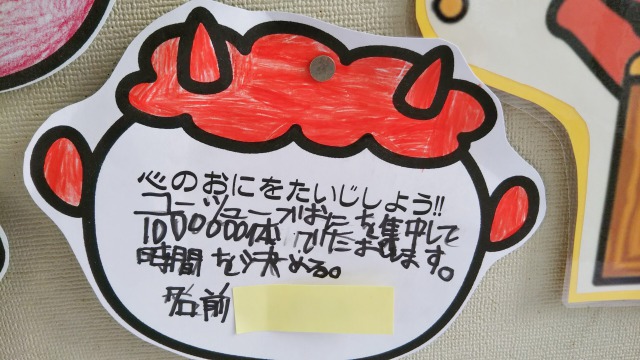 心のおにをたいじしよう!!
ユーチューブおにを集中して
1000000体 たおします。
時間を決める。
名前